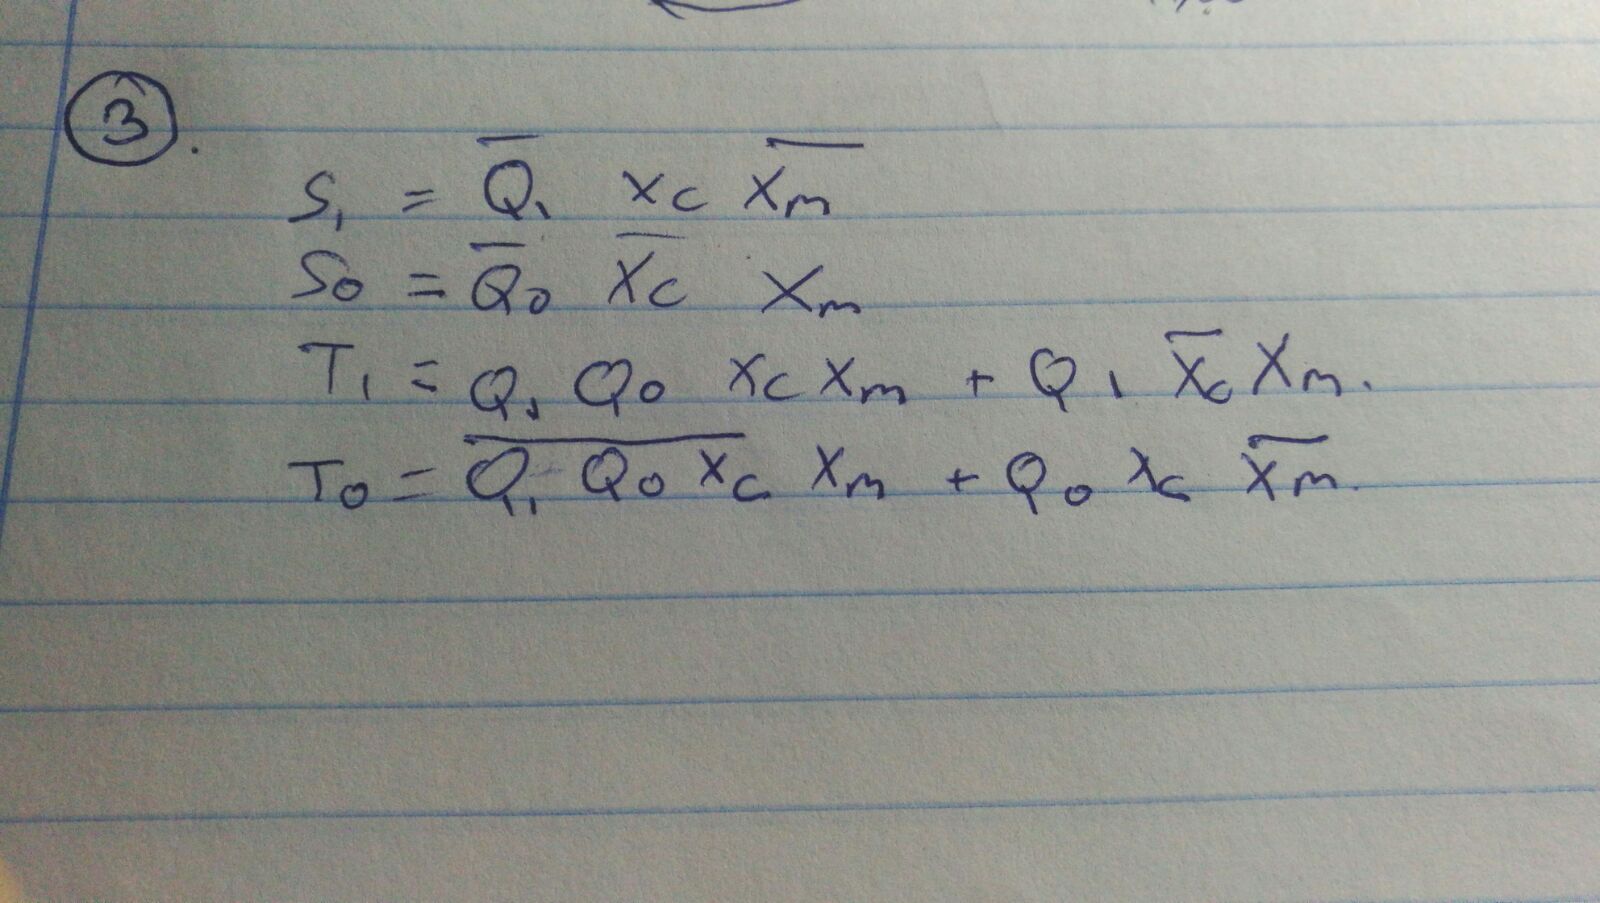 ③.
S₁ = Q̅₁ X_C X̅_m̅
S₀ = Q̅₀ X̅_C̅ X_m
T₁ = Q₁ Q₀ X_C X_m + Q₁ X̅_C X_m.
T₀ = \overline{Q₁ Q₀ X_C} X_m + Q₀ X_C X̅_m̅.